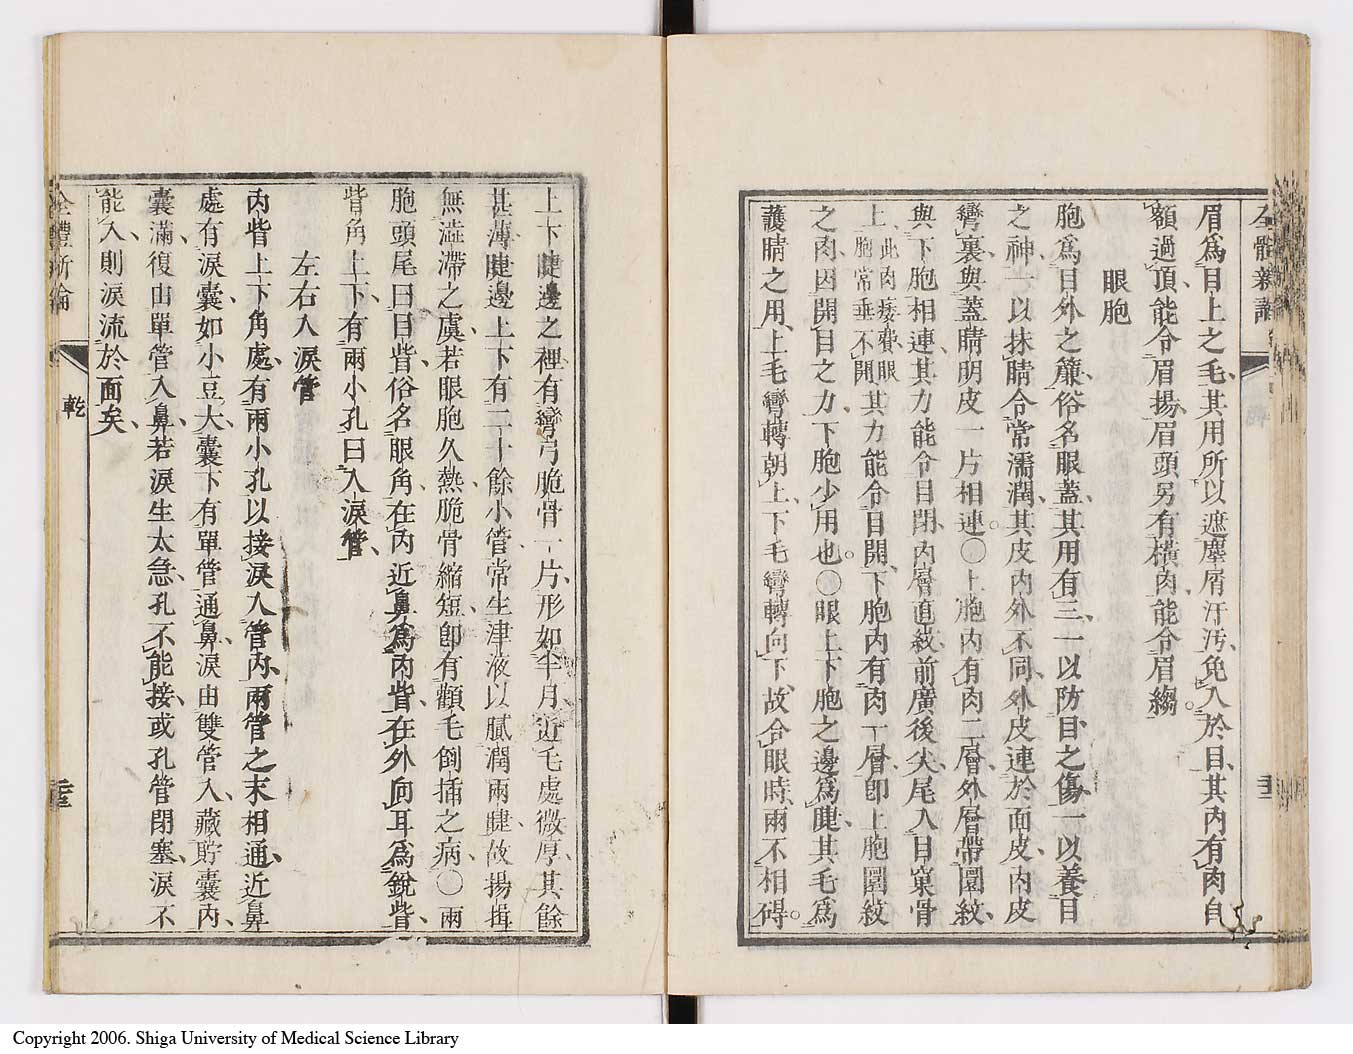 眉爲目上之毛、其用所以遮塵屑汗汚、免入於目、其內有肉自
額過頂、能令眉揚、眉頭另有橫肉、能令眉縐。
眼胞
胞爲目外之簾、俗名眼蓋、其用有三、一以防目之傷、一以養目
之神、一以抹睛令常濡潤、其皮內外不同、外皮連於面皮、內皮
彎裏與蓋睛明皮一片相連。〇上胞內有肉二層、外層帶圍紋、
與下胞相連、其力能令目閉、內層直紋、前廣後尖、尾入目窠骨
上、此肉痿費眼胞常垂不開其力能令目開、下胞內有肉一層、卽上胞圍紋
之肉、因開目之力、下胞少用也。〇眼上下胞之邊爲睫、其毛爲
護睛之用、上毛彎轉朝上、下毛彎轉向下、故令眼時、兩不相碍。
上下睫邊之裡、有彎弓脆骨一片、形如半月、近毛處微厚、其餘
甚薄、睫邊上下有二十餘小管、常生津液、以膩潤兩睫、故揚揖
無澁滯之虞、若眼胞久熱、脆骨縮短、卽有顴毛倒插之病、〇兩
胞頭尾曰目眥、俗名眼角、在內近鼻爲內眥、在外向耳爲銳眥、
眥角上下、有兩小孔、曰入淚管、
左右入淚管
內眥上下角處、有兩小孔、以接淚入管內、兩管之末相通、近鼻
處有淚囊、如小豆大、囊下有單管通鼻、淚由雙管入藏貯囊內、
囊滿、復由單管入鼻、若淚生太急、孔不能接、或孔管閉塞、淚不
能入、則淚流於面矣、
全體新論
乾